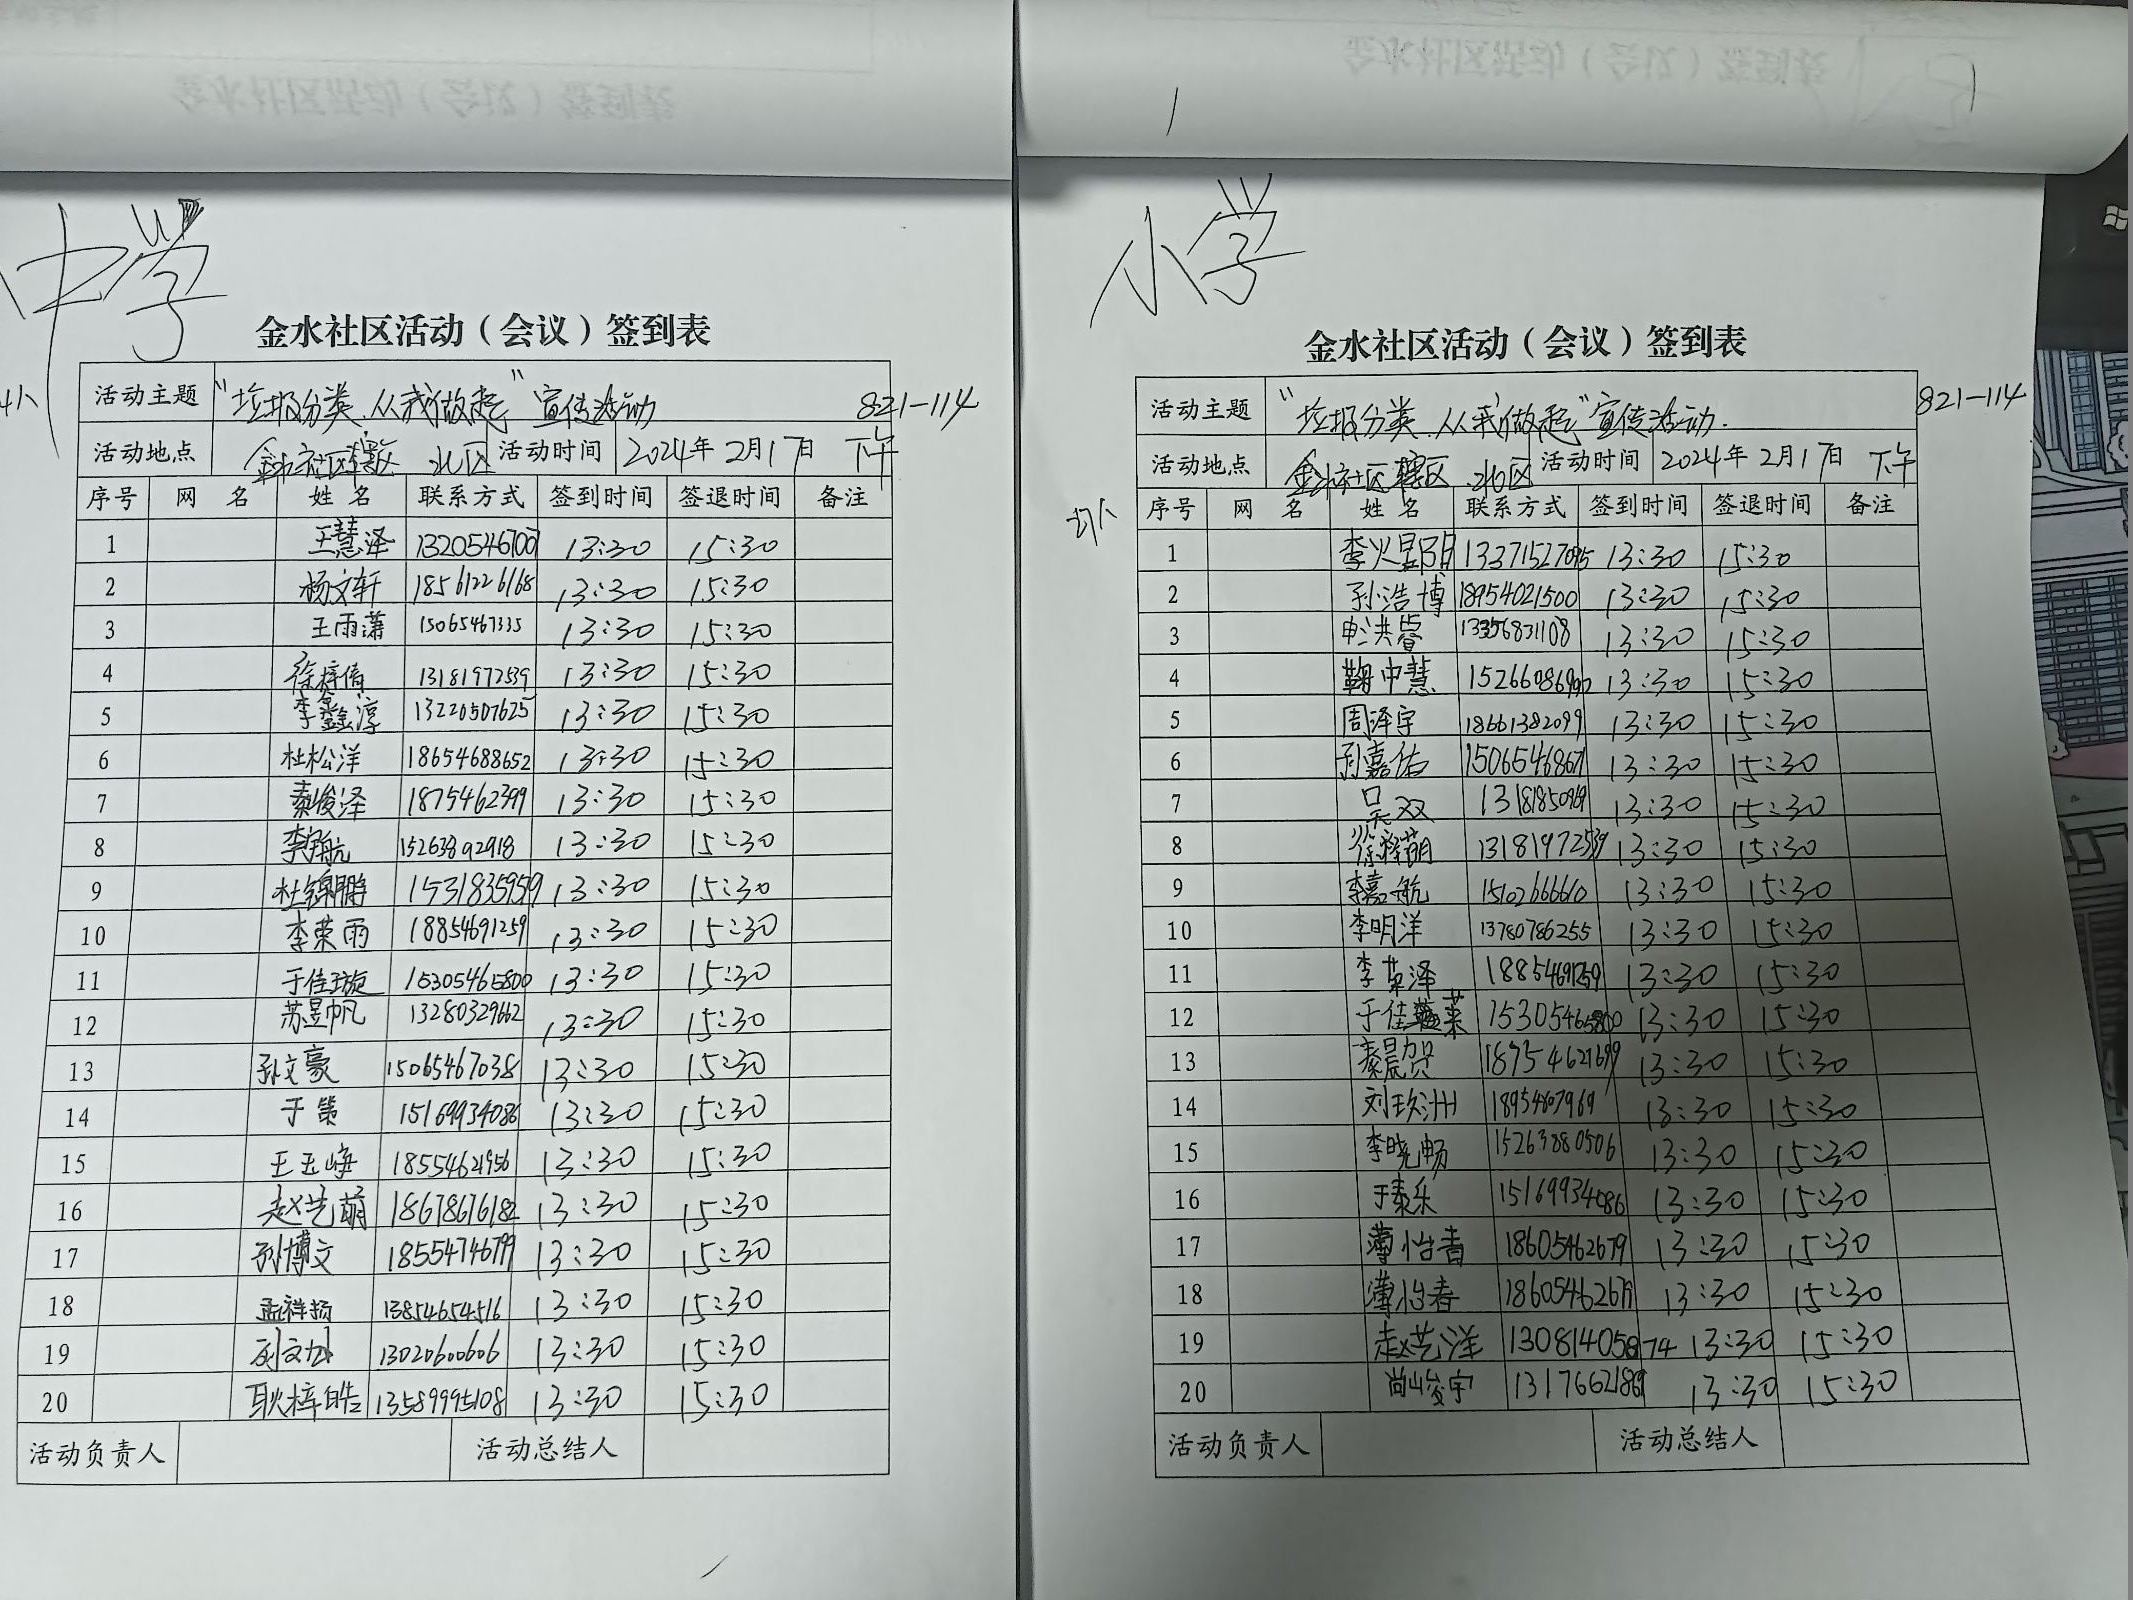 中学
金水社区活动（会议）签到表
活动主题 “垃圾分类,从我做起”宣传活动 821-114
活动地点 金水社区辖区 北区 活动时间 2024年2月17日 下午
序号 网 名 姓 名 联系方式 签到时间 签退时间 备注
1 王慧泽 1320546700 13:30 15:30
2 杨文轩 18561226168 13:30 15:30
3 王雨潇 15065467335 13:30 15:30
4 徐梓倩 13181972539 13:30 15:30
5 李鑫淳 13220507625 13:30 15:30
6 杜松洋 18654688652 13:30 15:30
7 秦俊泽 1875462399 13:30 15:30
8 李翰航 15263892918 13:30 15:30
9 杜锦鹏 1531835959 13:30 15:30
10 李荣雨 18854691259 13:30 15:30
11 于佳璇 15305465800 13:30 15:30
12 苏昱帆 13280329662 13:30 15:30
13 孙文豪 15065467038 13:30 15:30
14 于策 15169934086 13:30 15:30
15 王玉峰 18554621956 13:30 15:30
16 赵艺萌 18678676182 13:30 15:30
17 孙博文 18554746799 13:30 15:30
18 孟祥扬 13854654516 13:30 15:30
19 13020600606 13:30 15:30
20 耿梓皓 13589995108 13:30 15:30
活动负责人 活动总结人
小学
金水社区活动（会议）签到表
活动主题 “垃圾分类,从我做起”宣传活动. 821-114
活动地点 金水社区辖区 北区 活动时间 2024年2月17日 下午
序号 网 名 姓 名 联系方式 签到时间 签退时间 备注
1 13371527095 13:30 15:30
2 孙浩博 18954021500 13:30 15:30
3 申洪睿 13356831108 13:30 15:30
4 鞠中慧 13:30 15:30
5 周泽宇 18661382099 13:30 15:30
6 孙嘉佑 1506546867 13:30 15:30
7 吴双 13:30 15:30
8 徐梓萌 13181972539 13:30 15:30
9 李嘉航 15102666610 13:30 15:30
10 李明洋 13780786255 13:30 15:30
11 李荣泽 18854691259 13:30 15:30
12 于佳莱 15305465800 13:30 15:30
13 秦晨贺 18754621699 13:30 15:30
14 刘玖州 1895467969 13:30 15:30
15 李晓畅 15263880506 13:30 15:30
16 于泰乐 15169934086 13:30 15:30
17 薄怡青 18605462679 13:30 15:30
18 薄怡春 18605462679 13:30 15:30
19 赵艺洋 13081405874 13:30 15:30
20 尚峻宇 13176621869 13:30 15:30
活动负责人 活动总结人